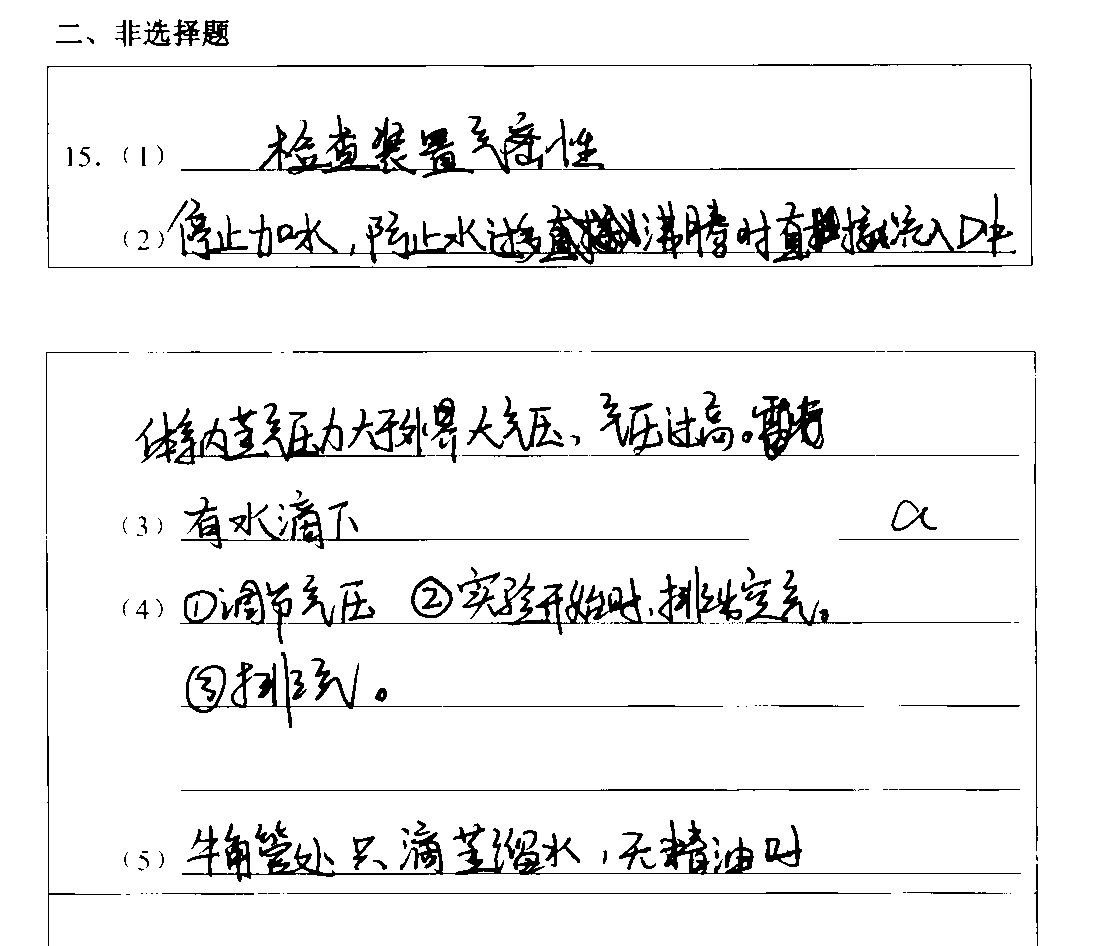 二、非选择题
15.（1）检查装置气密性
（2）停止加水，防止水过多沸腾时直接流入D中
体系内蒸气压力大于外界大气压，气压过高。
（3）有水滴下 a
（4）①调节气压 ②实验开始时，排出空气。
③排气。
（5）牛角管处只滴蒸馏水，无精油时